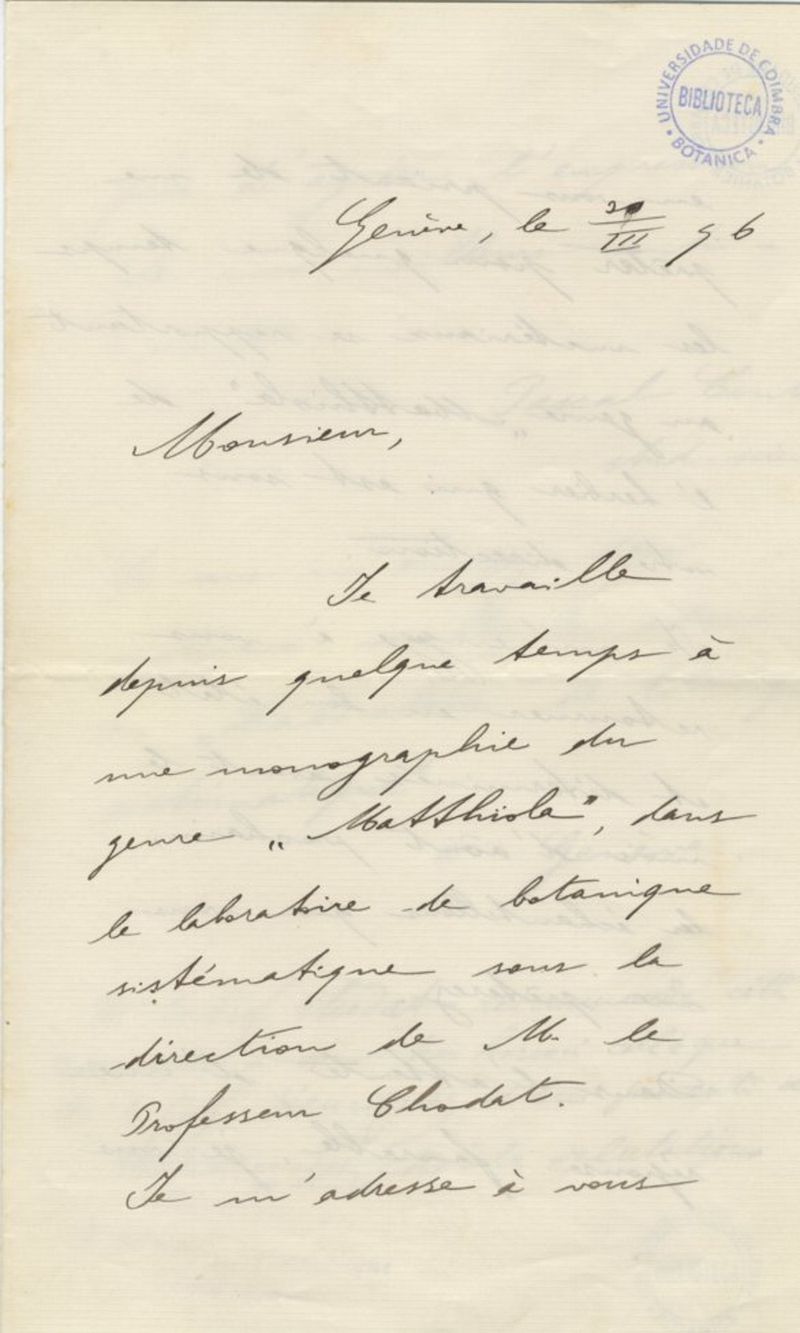 UNIVERSIDADE DE COIMBRA
BIBLIOTECA
BOTANICA
Genève, le 20/III 96
Monsieur,
Je travaille
depuis quelque temps à
une monographie du
genre „Matthiola”, dans
le laboratoire de botanique
sistématique sous la
direction de M. le
Professeur Chodat.
Je m'adresse à vous